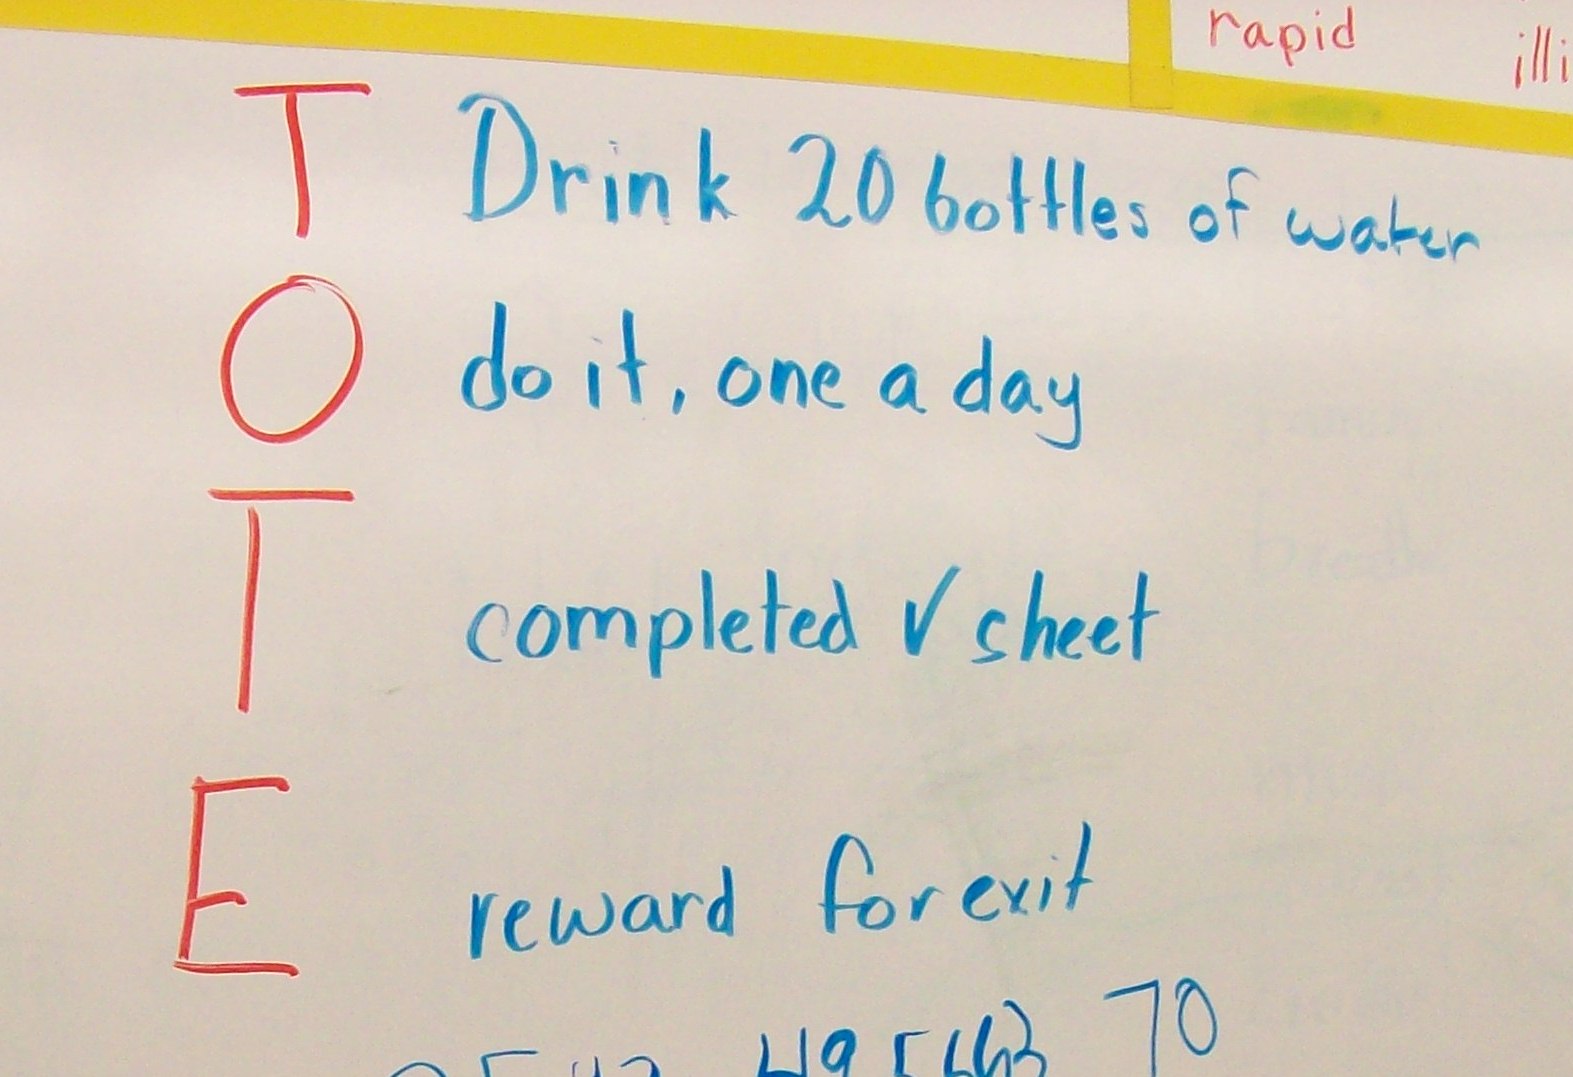 rapid
T Drink 20 bottles of water
O do it, one a day
T completed ✓ sheet
E reward for exit
49 56 63 70